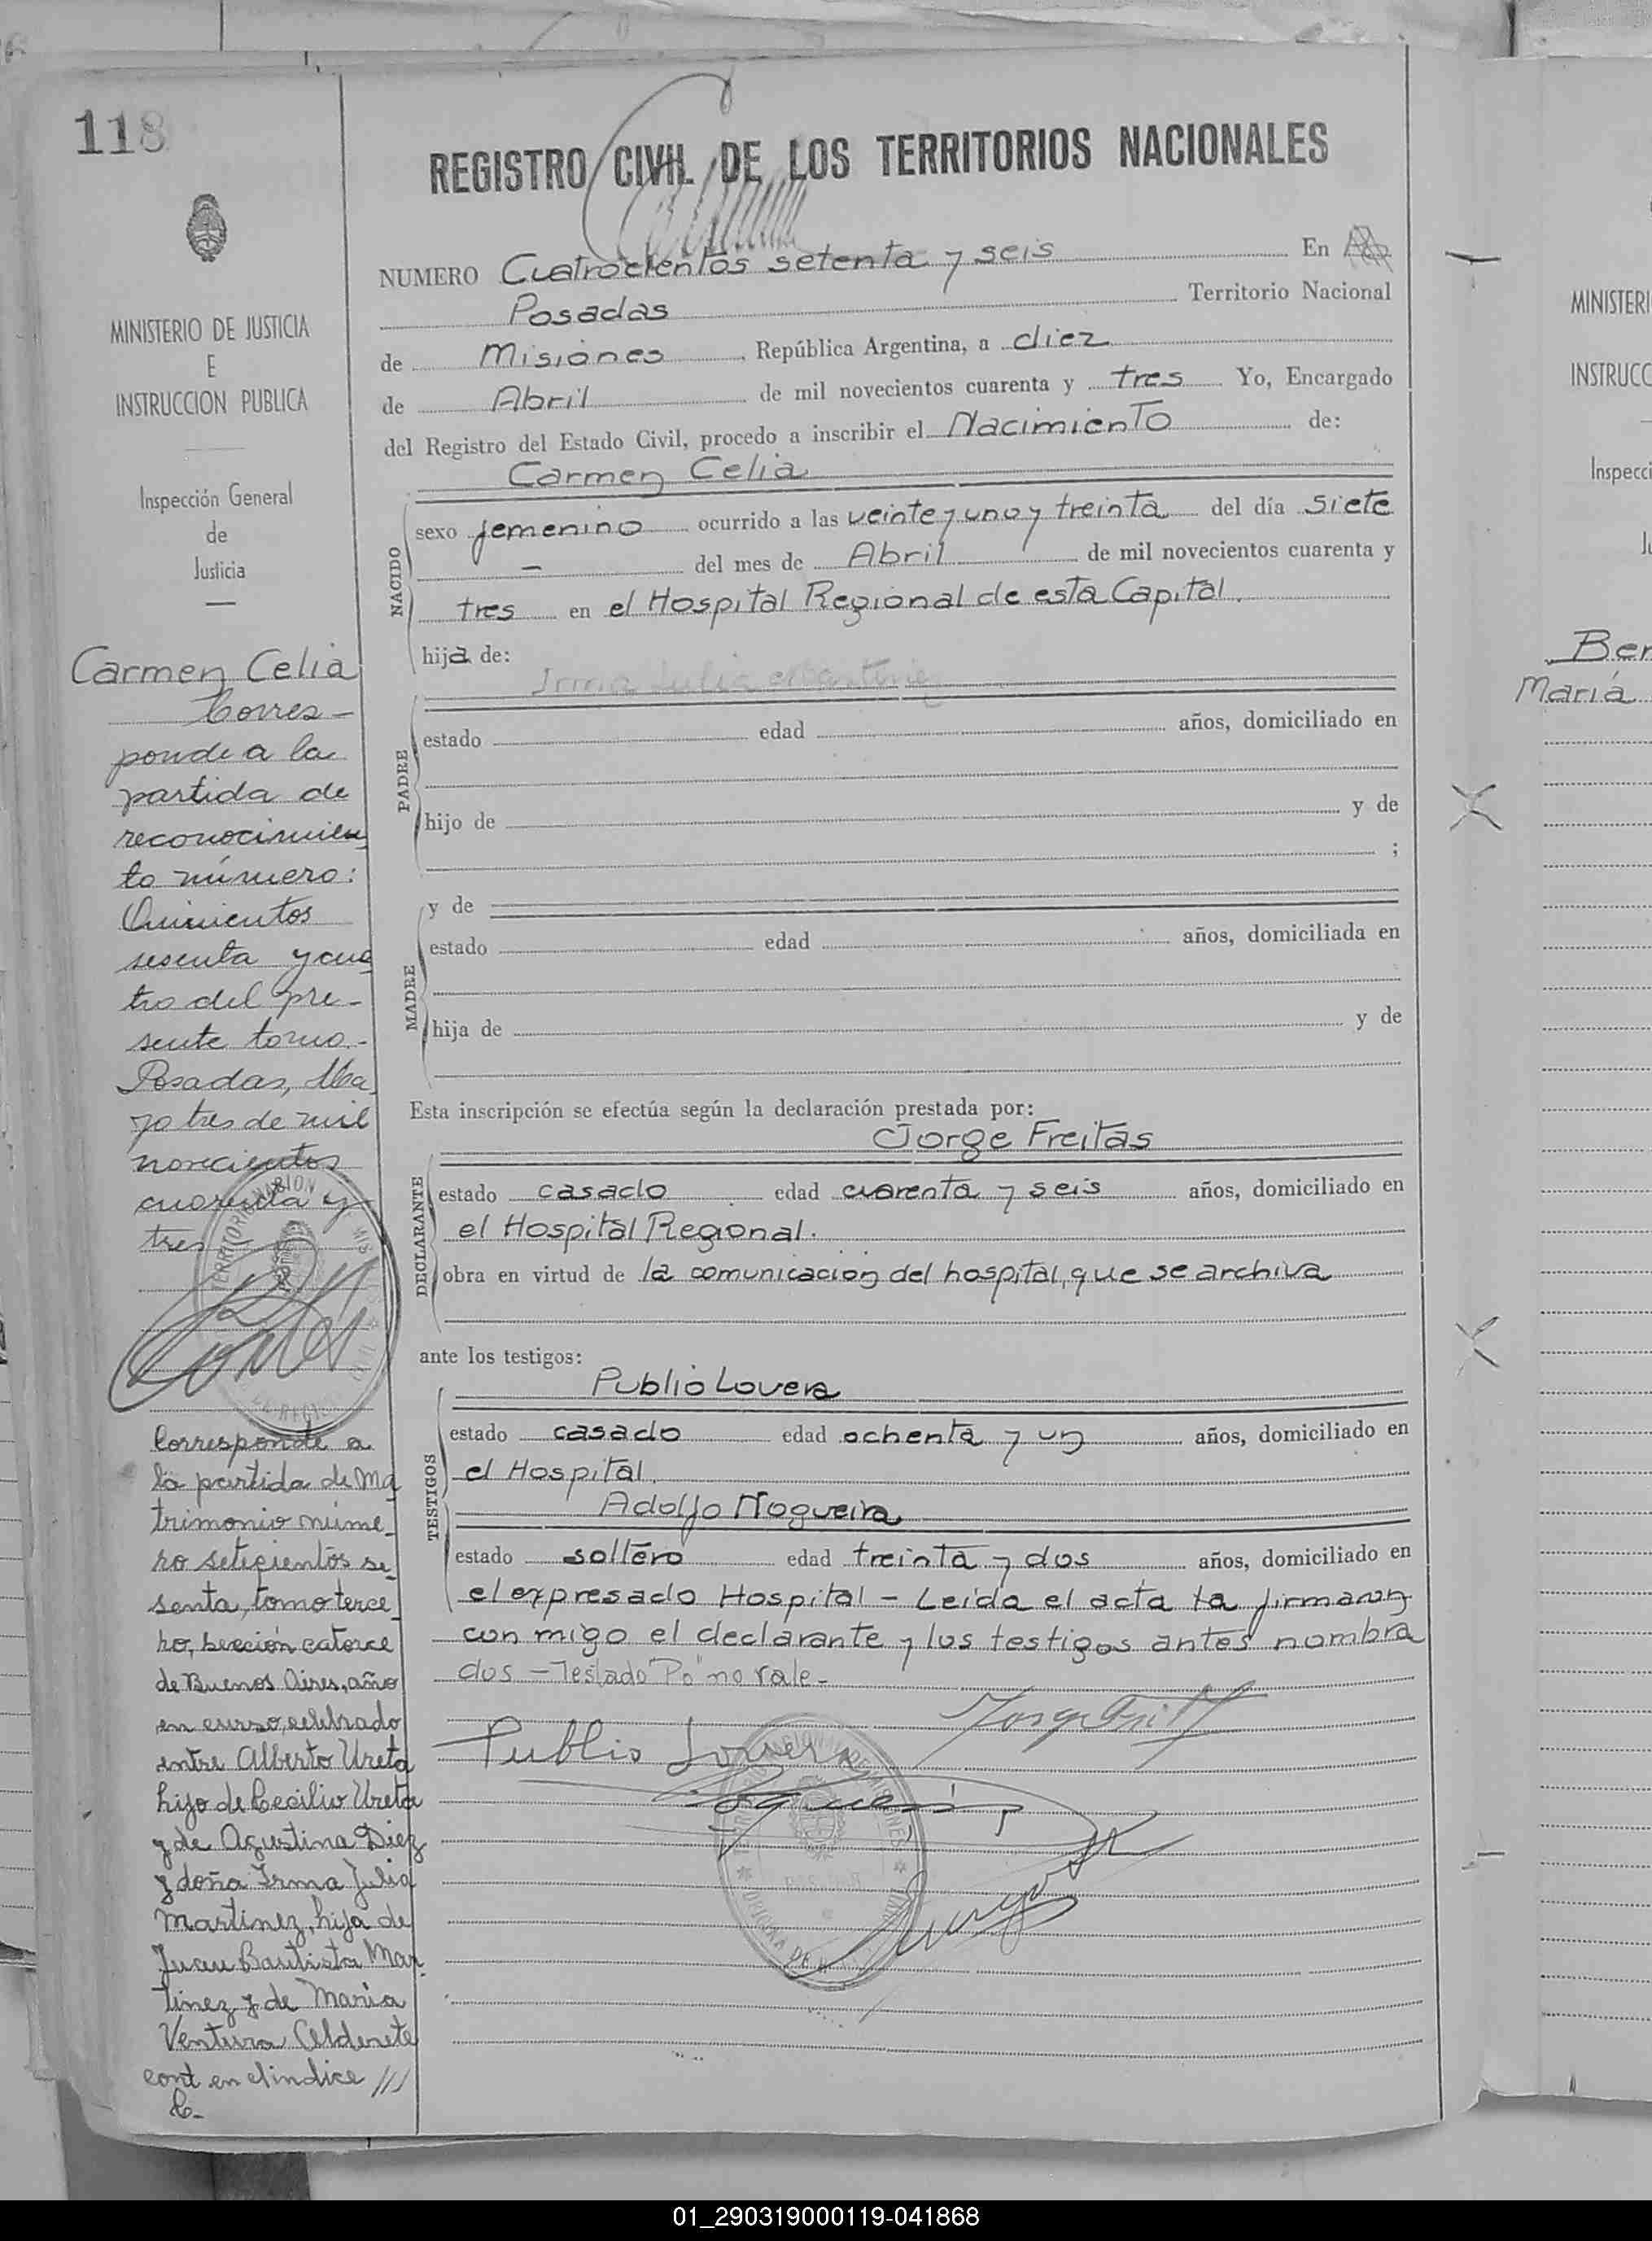 118
REGISTRO CIVIL DE LOS TERRITORIOS NACIONALES
NUMERO Cuatrocientos setenta y seis En
Posadas Territorio Nacional
de Misiones, República Argentina, a diez
de Abril de mil novecientos cuarenta y tres Yo, Encargado
del Registro del Estado Civil, procedo a inscribir el Nacimiento de:
Carmen Celia
NACIDO
sexo femenino ocurrido a las veinte y uno y treinta del día siete
— del mes de Abril de mil novecientos cuarenta y
tres en el Hospital Regional de esta Capital.
hija de:
Irma Julia Martinez
PADRE
estado edad años, domiciliado en
hijo de y de
;
MADRE
y de
estado edad años, domiciliada en
hija de y de
Esta inscripción se efectúa según la declaración prestada por:
Jorge Freitas
DECLARANTE
estado casado edad cuarenta y seis años, domiciliado en
el Hospital Regional.
obra en virtud de la comunicación del hospital, que se archiva
ante los testigos:
Publio Lovera
TESTIGOS
estado casado edad ochenta y un años, domiciliado en
el Hospital.
Adolfo Nogueira
estado soltero edad treinta y dos años, domiciliado en
el expresado Hospital - Leída el acta la firmaron
con migo el declarante y los testigos antes nombra
dos - Testado "Po" no vale -
Publio Lovera
MINISTERIO DE JUSTICIA
E
INSTRUCCION PUBLICA
Inspección General
de
Justicia
Carmen Celia
Corres-
ponde a la
partida de
reconocimien
to número:
Quinientos
sesenta y cua
tro del pre-
sente tomo.-
Posadas, Ma
yo tres de mil
novecientos
cuarenta y
tres
Corresponde a
la partida de Ma
trimonio núme-
ro setecientos se-
senta, tomo terce-
ro, sección catorce
de Buenos Aires, año
en curso, celebrado
entre Alberto Ureta
hijo de Cecilio Ureta
y de Agustina Diez
y doña Irma Julia
Martinez, hija de
Juan Bautista Mar
tinez y de Maria
Ventura Alderete
cont en el indice ///
C-
MINISTERI
INSTRUCC
Inspecci
Ber
María
01_290319000119-041868